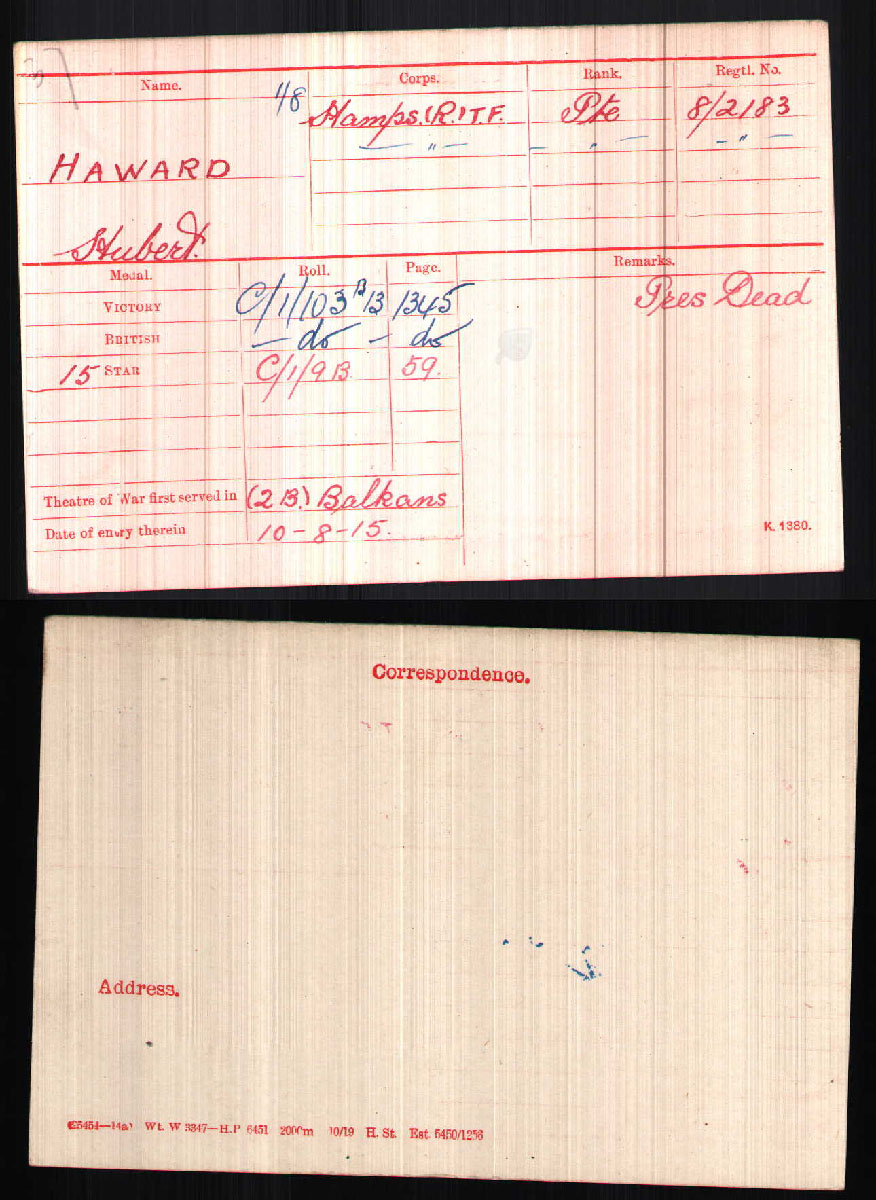 Name. Corps. Rank. Regtl. No.
Hamps. (R.) T.F. Pte 8/2183
— " — — " — — " —
HAWARD
Hubert.
Medal. Roll. Page. Remarks.
VICTORY C/1/103 B13 1345 Pres Dead
BRITISH — do — do
15 STAR C/1/9 B. 59.
Theatre of War first served in (2 B.) Balkans
Date of entry therein 10-8-15.
K. 1380.
Correspondence.
Address.
Wt. W 3347—H.P 6451 2000m 10/19 H. St. Est. 5450/1256